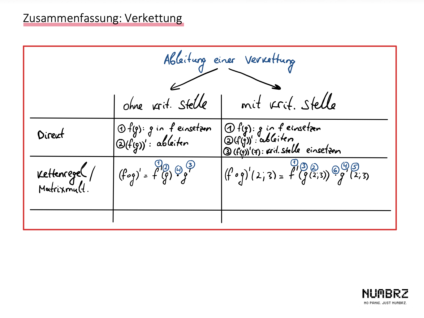 Zusammenfassung: Verkettung
Ableitung einer Verkettung
ohne krit. Stelle
mit krit. Stelle
Direkt
① f(g): g in f einsetzen
② (f(g))': ableiten
① f(g): g in f einsetzen
② (f(g))': ableiten
③ (f(g))'(x): krit. Stelle einsetzen
Kettenregel/
Matrixmult.
① ② ④ ③
(f∘g)' = f'(g) · g'
① ③ ② ⑥ ④ ⑤
(f∘g)'(2;3) = f'(g(2;3)) · g'(2;3)
NUMBRZ
NO PANIC. JUST NUMBRZ